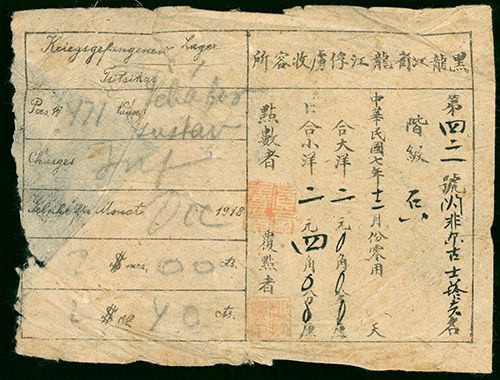 Kriegsgefangenen Lager
Tsitsikar
Pers № 471
Gustav
Charges
Gebühr für Monat Dec 1918
2 $ mex. 00 cts.
2 $ 40 cts.
黑龍江省龍江俘虜收容所
第四二 號
階級
中華民國七年十二月份零用
合大洋二元0角0分0厘
合小洋二元四角0分0厘
點數者
覆點者